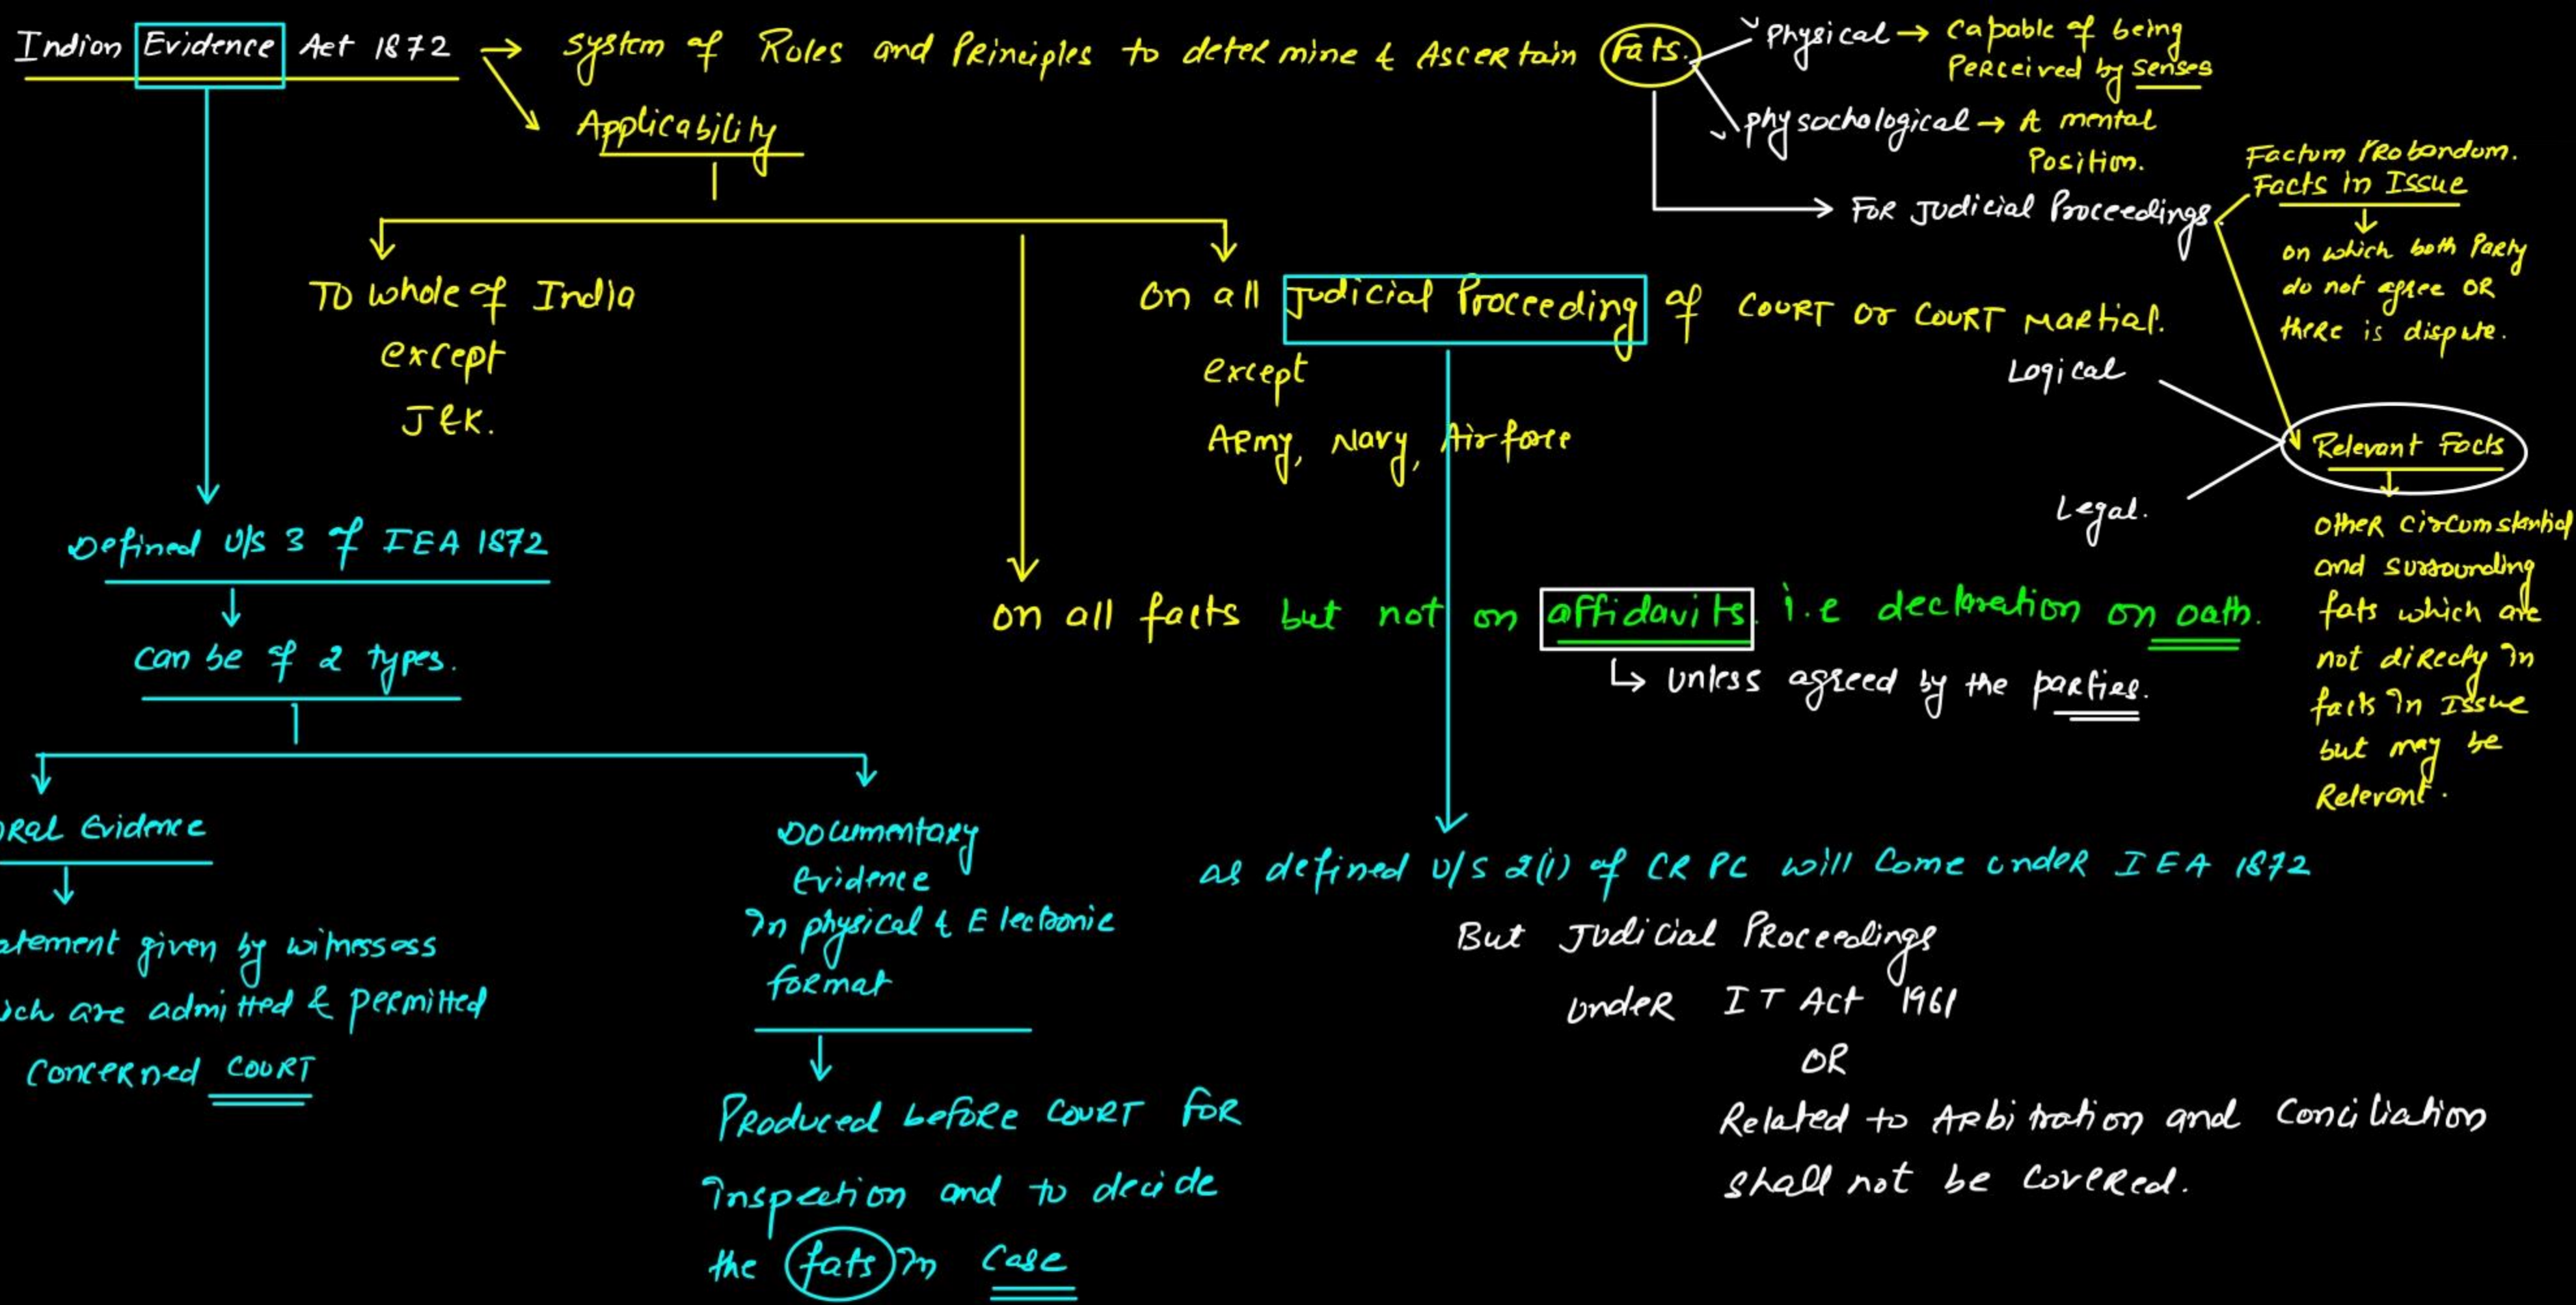 Indian Evidence Act 1872 → System of Rules and Principles to determine & Ascertain Fats.
Applicability
✓ Physical → Capable of being
Perceived by senses
✓ physochological → A mental
Position.
→ For Judicial Proceedings
Factum Probandum.
Facts in Issue
on which both Party
do not agree OR
there is dispute.
Logical
Legal.
Relevant Facts
other circumstantial
and surrounding
fats which are
not direcly in
facts in Issue
but may be
Relevant.
To whole of India
except
J&K.
on all Judicial Proceeding of COURT or COURT Martial.
except
Army, Navy, Airforce
on all facts but not on affidavits. i.e declaration on oath.
↳ unless agreed by the parties.
as defined U/S 2(i) of CR PC will Come under IEA 1872
But Judicial Proceedings
under IT Act 1961
OR
Related to Arbitration and Conciliation
shall not be covered.
Defined U/S 3 of IEA 1872
can be of 2 types.
oral Evidence
atement given by witnessess
ich are admitted & permitted
Concerned COURT
Documentary
Evidence
In physical & Electronic
format
Produced before COURT for
Inspection and to decide
the fats in Case